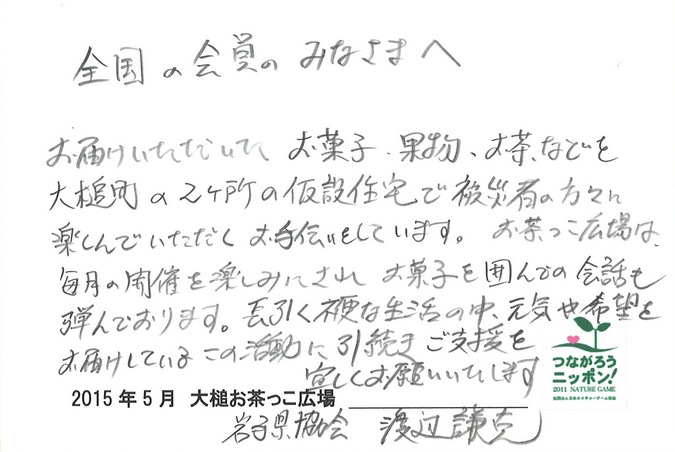 全国の会員のみなさまへ
お届けいただいた お菓子、果物、お茶などを
大槌町の2ヶ所の仮設住宅で被災者の方々に
楽しんでいただくお手伝いをしています。お茶っこ広場は、
毎月の開催を楽しみにされ お菓子を囲んでの会話も
弾んでおります。長引く不便な生活の中、元気や希望を
お届けしているこの活動に引続きご支援を
宜しくお願いいたします
つながろう
ニッポン!
2011 NATURE GAME
社団法人日本ネイチャーゲーム協会
2015年5月 大槌お茶っこ広場
岩手県協会 渡辺謙克